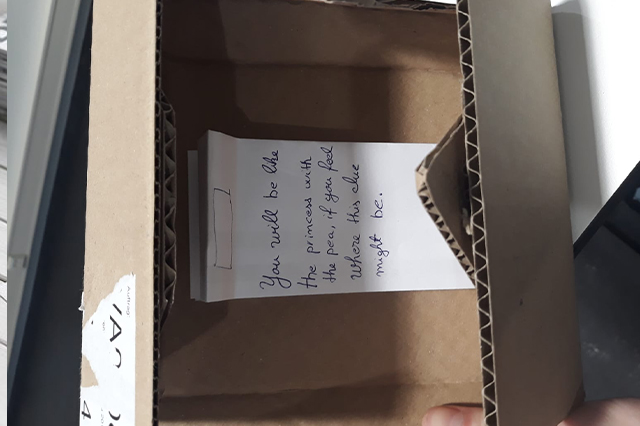 You will be like
the princess with
the pea, if you feel
where this clue
might be.
4